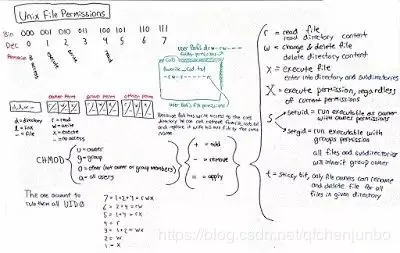 Unix File Permissions
Bin 000 001 010 011 100 101 110 111
Dec 0 1 2 3 4 5 6 7
no access
execute
write
read
User Bob's dir
CoD
favorite_Cod.txt
User Bob's file permissions
owner perm group perm other perm
d = directory
l = link
- = file
r = read
w = write
x = execute
- = no access
Because Bob has write access to the CoD
directory
CHMOD
u = owner
g = group
o = other (not owner or group members)
a = all users
+ = add
- = remove
= = apply
The one account to
rule them all UID 0
7 = 1+2+4 = rwx
6 = 2+4 = rw
5 = 1+4 = rx
4 = r
3 = 1+2 = wx
2 = w
1 = x
r = read file
read directory content
w = change & delete file
delete directory content
x = execute file
enter into directory and subdirectories
X = execute permission, regardless
of current permissions
s
setuid = run executable as owner
with owner permissions
setgid = run executable with
groups permission
all files and subdirectories
will inherit group owner
t = sticky bit, only file owners can rename
and delete file for all
files in given directory
https://blog.csdn.net/qlchenjunbo